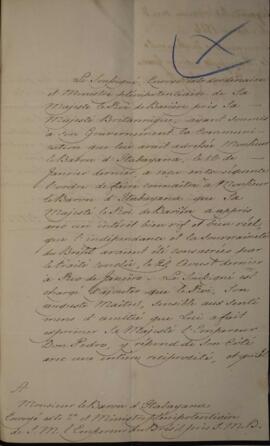 Le Soussigné, Envoyé extraordinaire
et Ministre Plénipotentiaire de Sa
Majesté le Roi de Bavière près Sa
Majesté Britannique, ayant soumis
à son Gouvernement la communi-
cation que lui avait adressé Monsieur
le Baron d'Itabayana, le 10 de
Janvier dernier, a reçu en
l'ordre de faire connaître à Monsieur
le Baron d'Itabayana que Sa
Majesté le Roi de Bavière a appris
avec un intérêt bien vif et bien réel,
que l'indépendance et la Souveraineté
du Brésil avaient été consacrées par
le traité conclu, le 29 Aout dernier
à Rio de Janeiro. Le Soussigné est
chargé d'ajouter que le Roi, Son
auguste Maître, sensible aux senti-
mens d'amitié que Lui a fait
exprimer Sa Majesté l'Empereur
Don Pedro, y répond de Son Côté
avec une entière réciprocité, et qu'il
A
Monsieur le Baron d'Itabayana
Envoyé et Ministre Plénipotentiaire
de S. M. l'Empereur du Brésil près S. M. B.